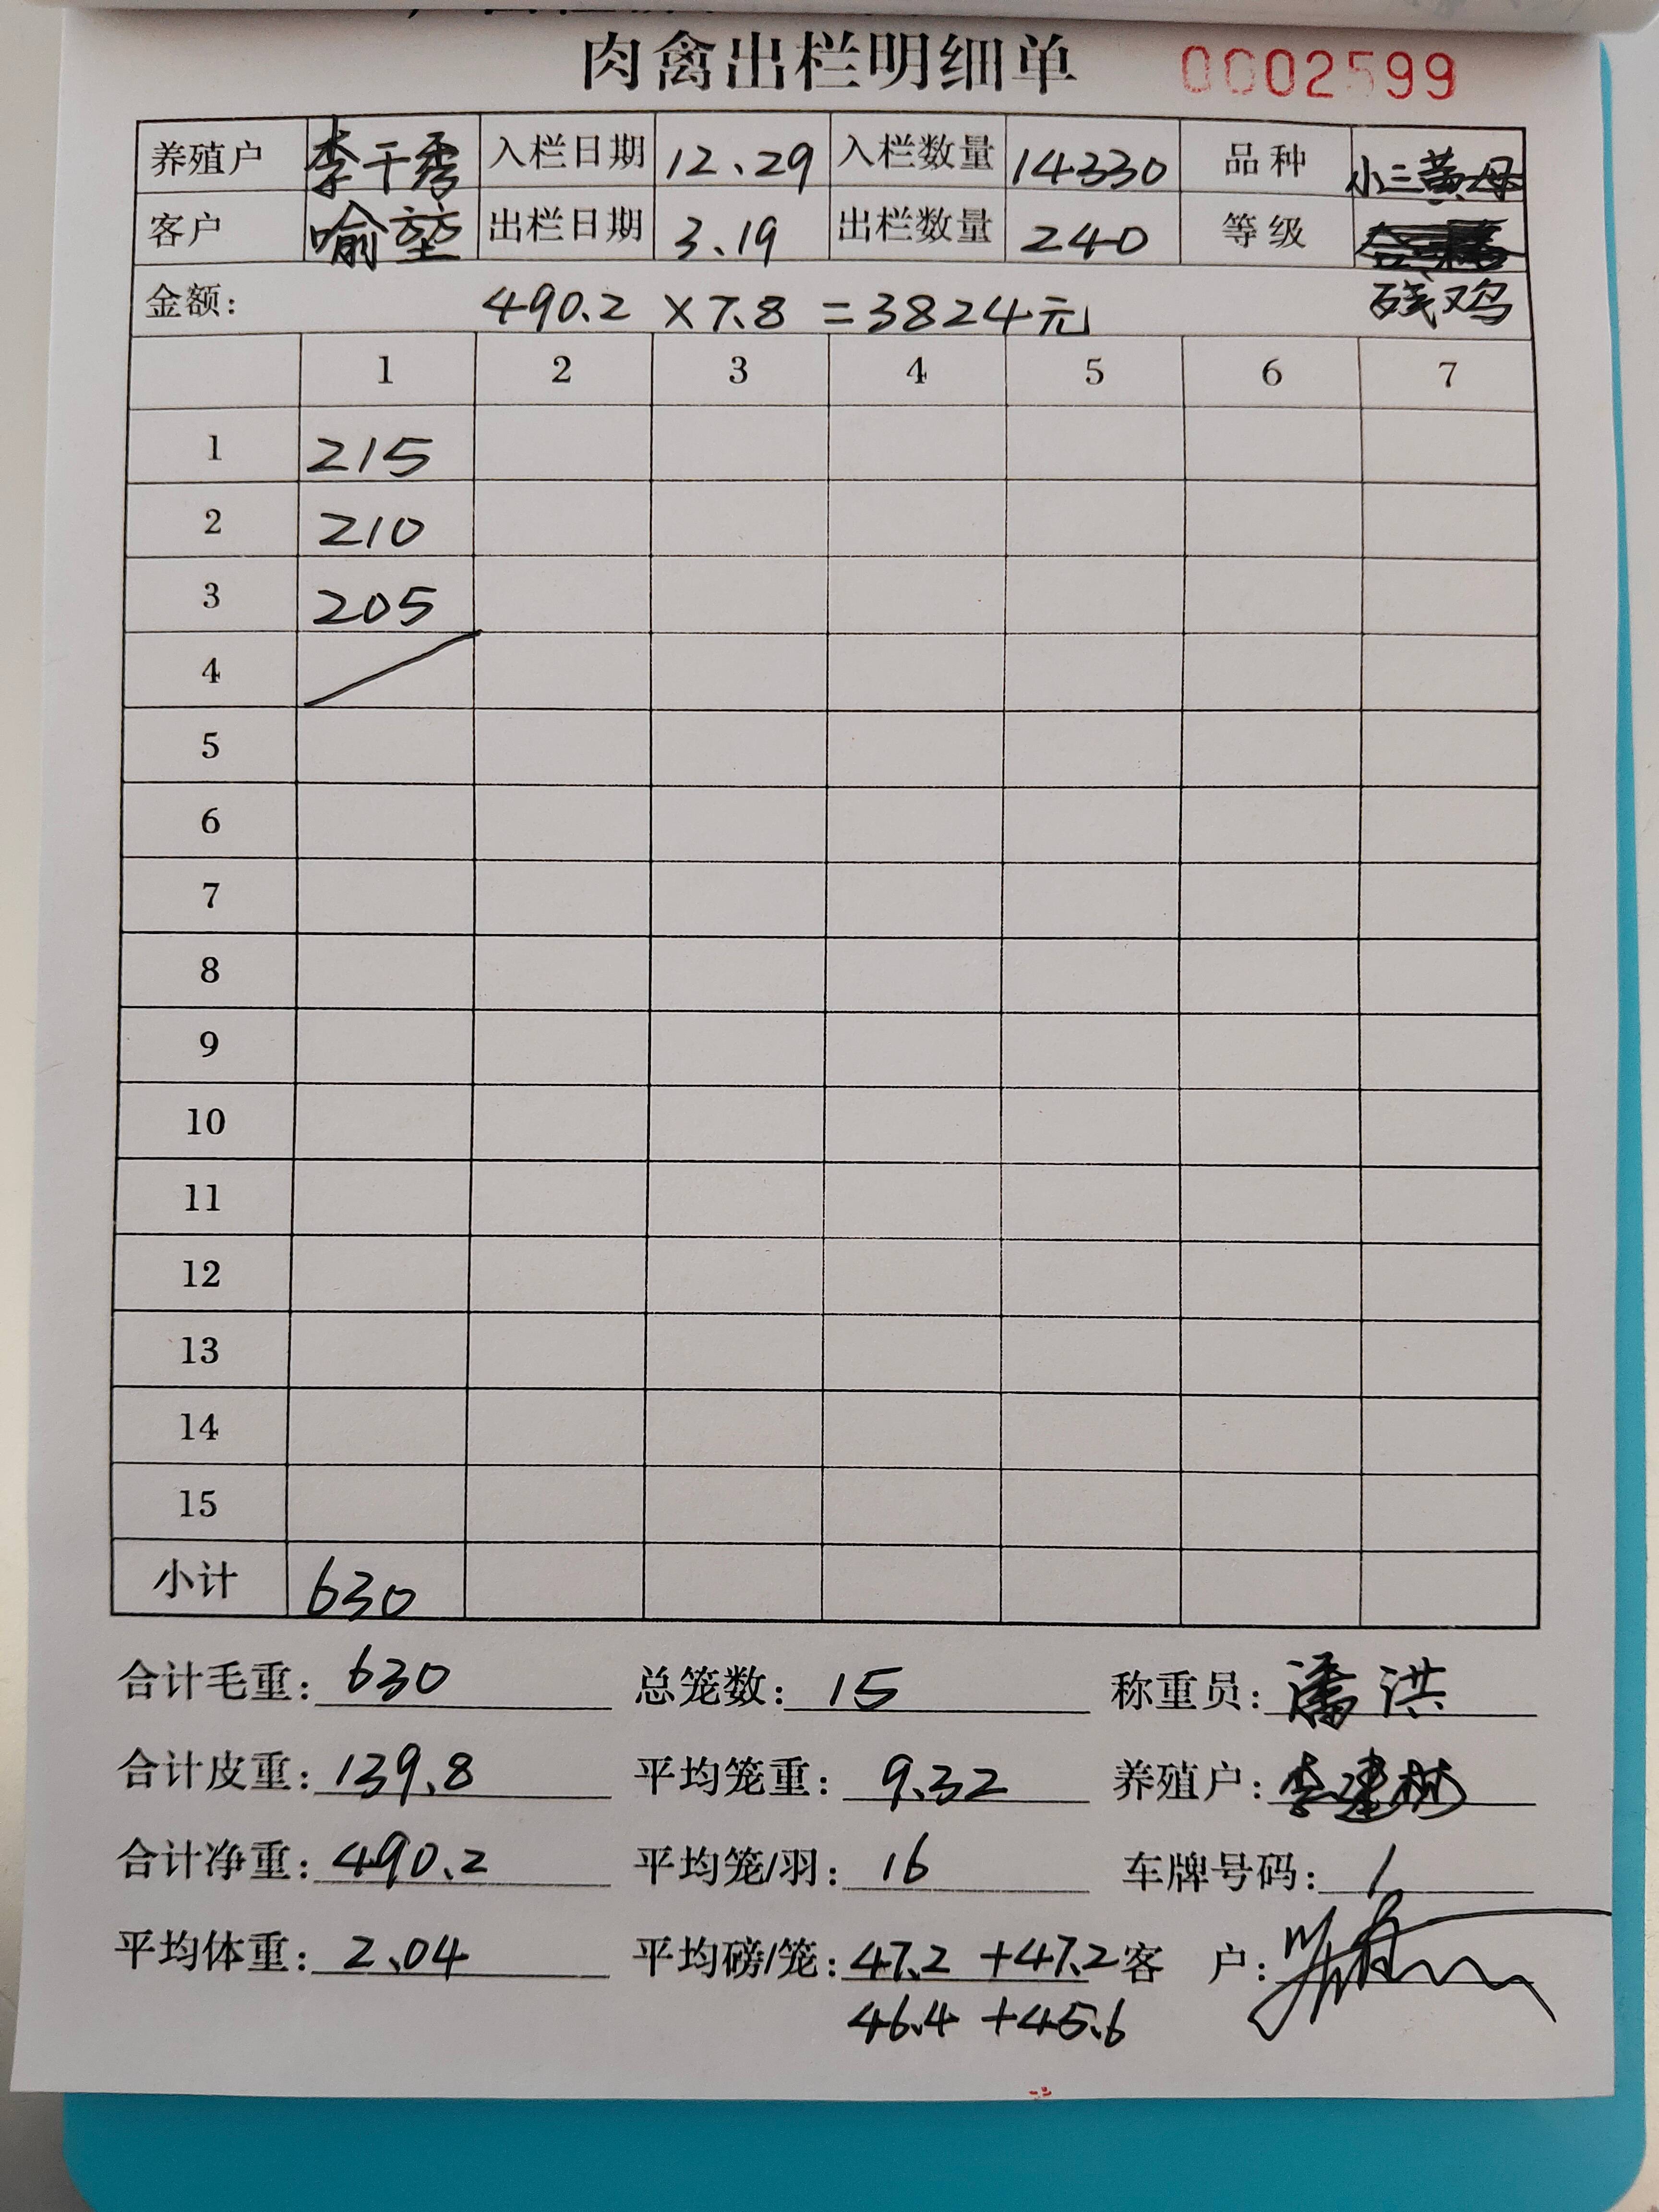 肉禽出栏明细单 0002599
养殖户 李干秀 入栏日期 12.29 入栏数量 14330 品种 小三黄母
客户 喻堃 出栏日期 3.19 出栏数量 240 等级
金额: 490.2 ×7.8 =3824元 残鸡
1 2 3 4 5 6 7
1 215
2 210
3 205
4
5
6
7
8
9
10
11
12
13
14
15
小计 630
合计毛重: 630 总笼数: 15 称重员: 潘洪
合计皮重: 139.8 平均笼重: 9.32 养殖户: 李建林
合计净重: 490.2 平均笼/羽: 16 车牌号码: /
平均体重: 2.04 平均磅/笼: 47.2 +47.2 客 户:
46.4 +45.6